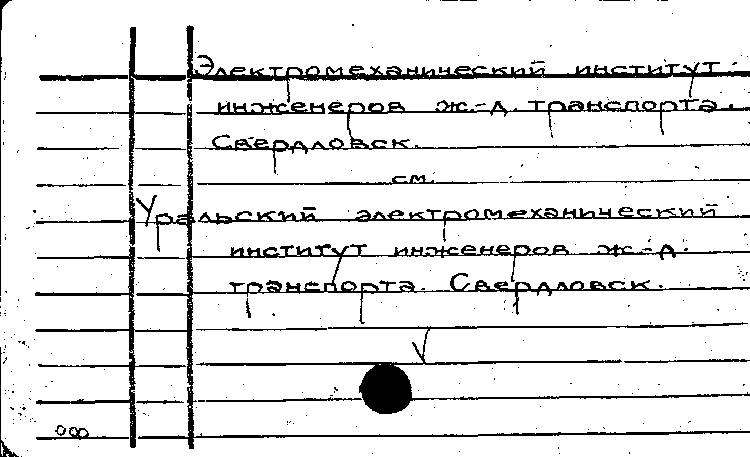 Электромеханический институт
инженеров ж.-д. транспорта.
Свердловск.
см.
Уральский электромеханический
институт инженеров ж.-д.
транспорта. Свердловск.